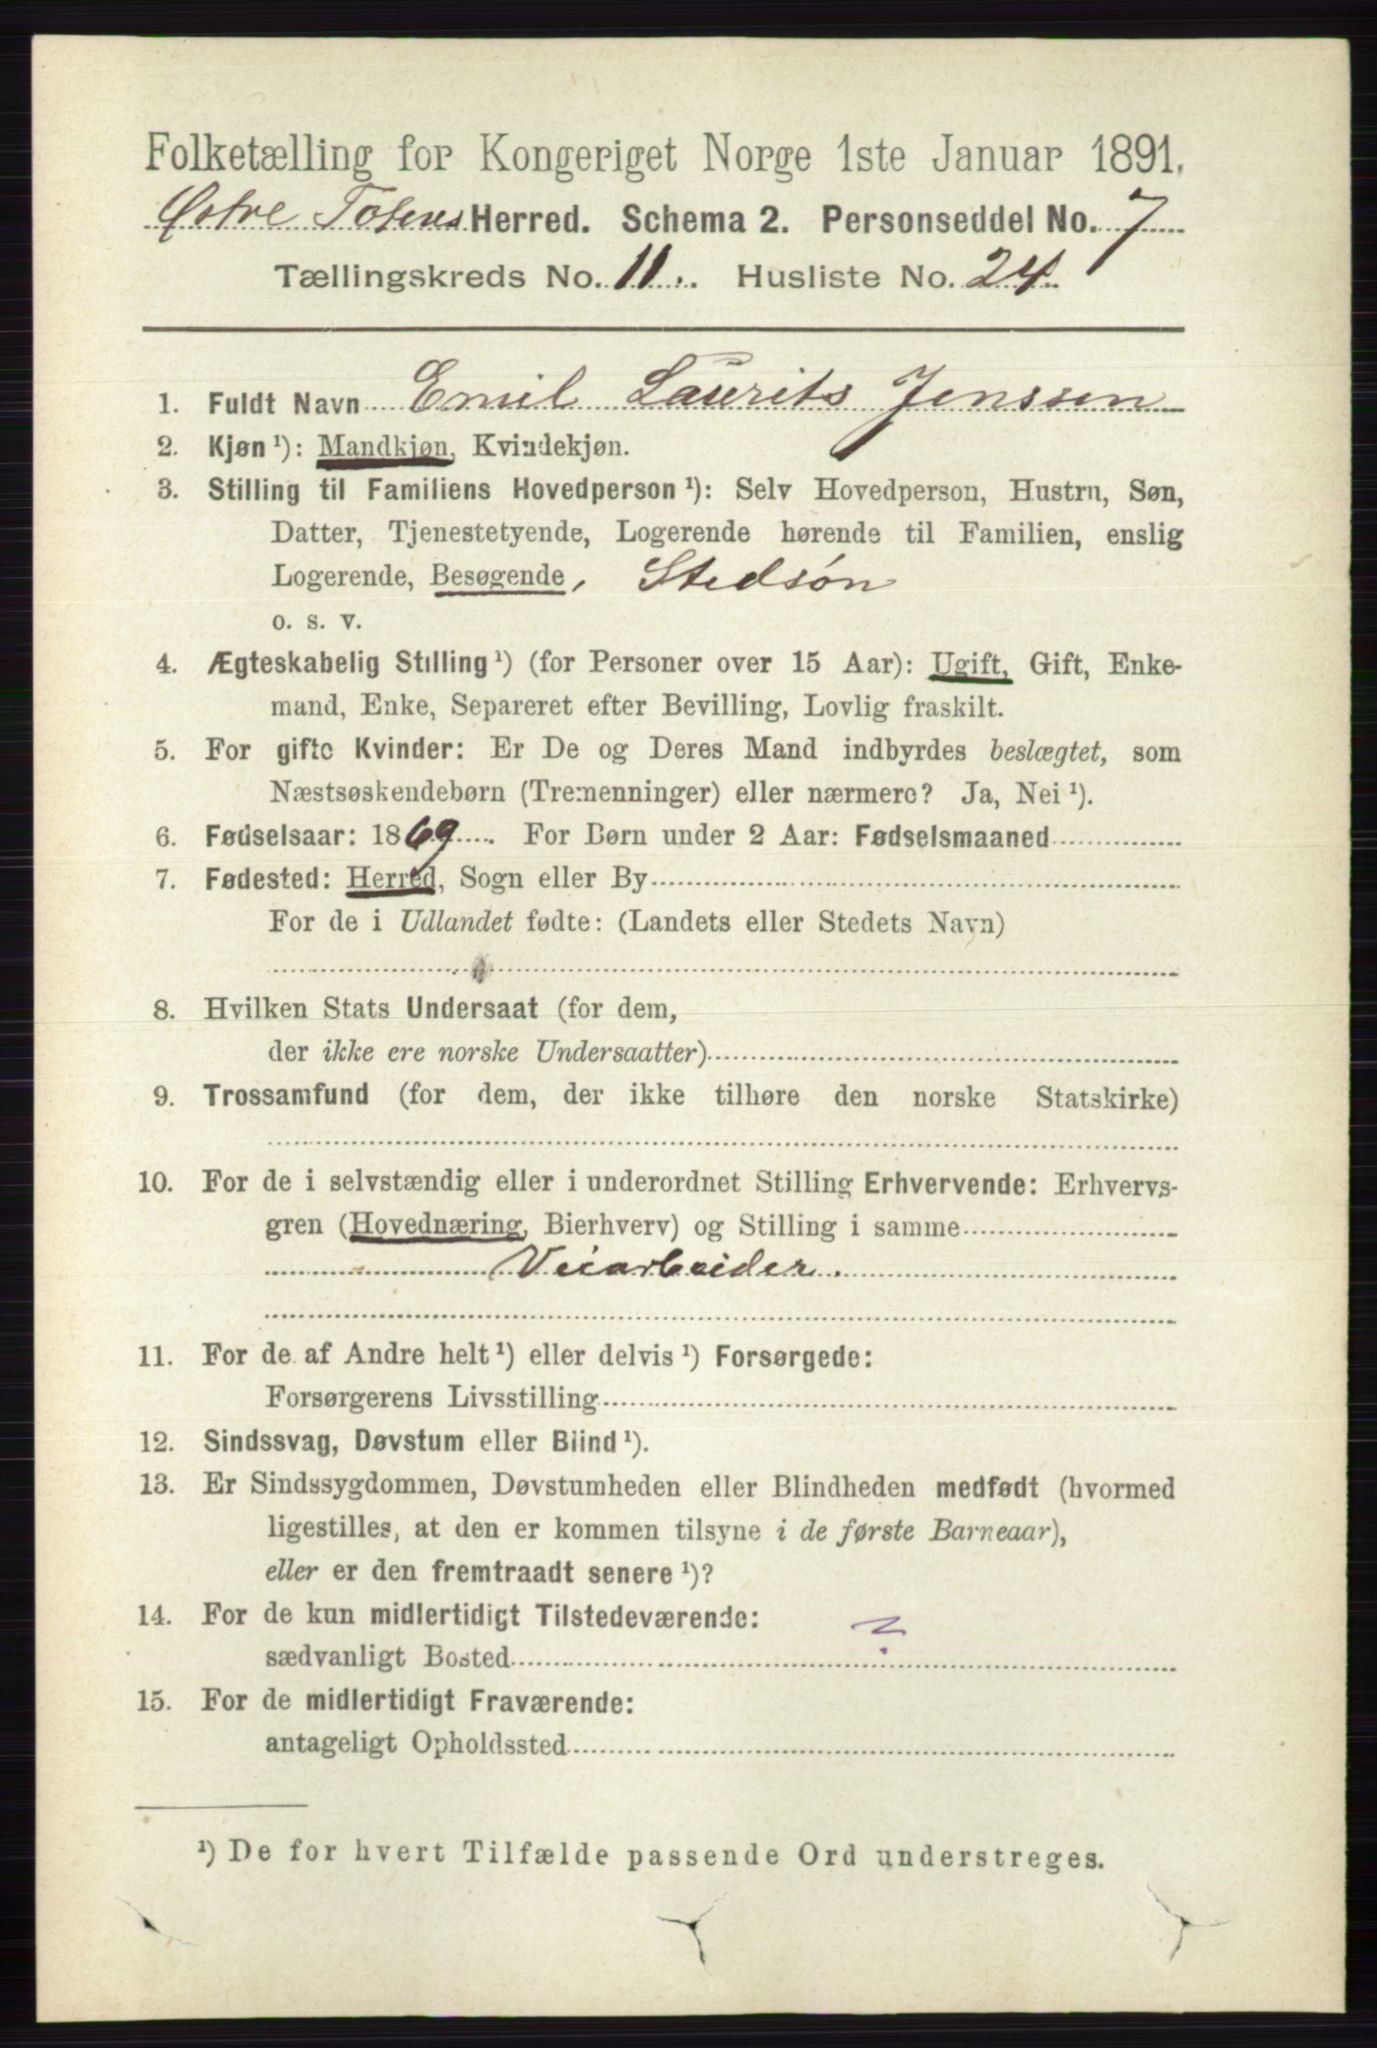 Folketælling for Kongeriget Norge 1ste Januar 1891.
Østre Totens Herred. Schema 2. Personseddel No. 7
Tællingskreds No. 11. Husliste No. 24
1. Fuldt Navn Emil Laurits Jenssen
2. Kjøn ¹): Mandkjøn, Kvindekjøn.
3. Stilling til Familiens Hovedperson ¹): Selv Hovedperson, Hustru, Søn,
Datter, Tjenestetyende, Logerende hørende til Familien, enslig
Logerende, Besøgende, Stedsøn
o. s. v.
4. Ægteskabelig Stilling ¹) (for Personer over 15 Aar): Ugift, Gift, Enke-
mand, Enke, Separeret efter Bevilling, Lovlig fraskilt.
5. For gifte Kvinder: Er De og Deres Mand indbyrdes beslægtet, som
Næstsøskendebørn (Tremenninger) eller nærmere? Ja, Nei ¹).
6. Fødselsaar: 1869. For Børn under 2 Aar: Fødselsmaaned
7. Fødested: Herred, Sogn eller By
For de i Udlandet fødte: (Landets eller Stedets Navn)
8. Hvilken Stats Undersaat (for dem,
der ikke ere norske Undersaatter)
9. Trossamfund (for dem, der ikke tilhøre den norske Statskirke)
10. For de i selvstændig eller i underordnet Stilling Erhvervende: Erhvervs-
gren (Hovednæring, Bierhverv) og Stilling i samme
Veiarbeider.
11. For de af Andre helt ¹) eller delvis ¹) Forsørgede:
Forsørgerens Livsstilling
12. Sindssvag, Døvstum eller Blind ¹).
13. Er Sindssygdommen, Døvstumheden eller Blindheden medfødt (hvormed
ligestilles, at den er kommen tilsyne i de første Barneaar),
eller er den fremtraadt senere ¹)?
14. For de kun midlertidigt Tilstedeværende:
sædvanligt Bosted ?
15. For de midlertidigt Fraværende:
antageligt Opholdssted
¹) De for hvert Tilfælde passende Ord understreges.